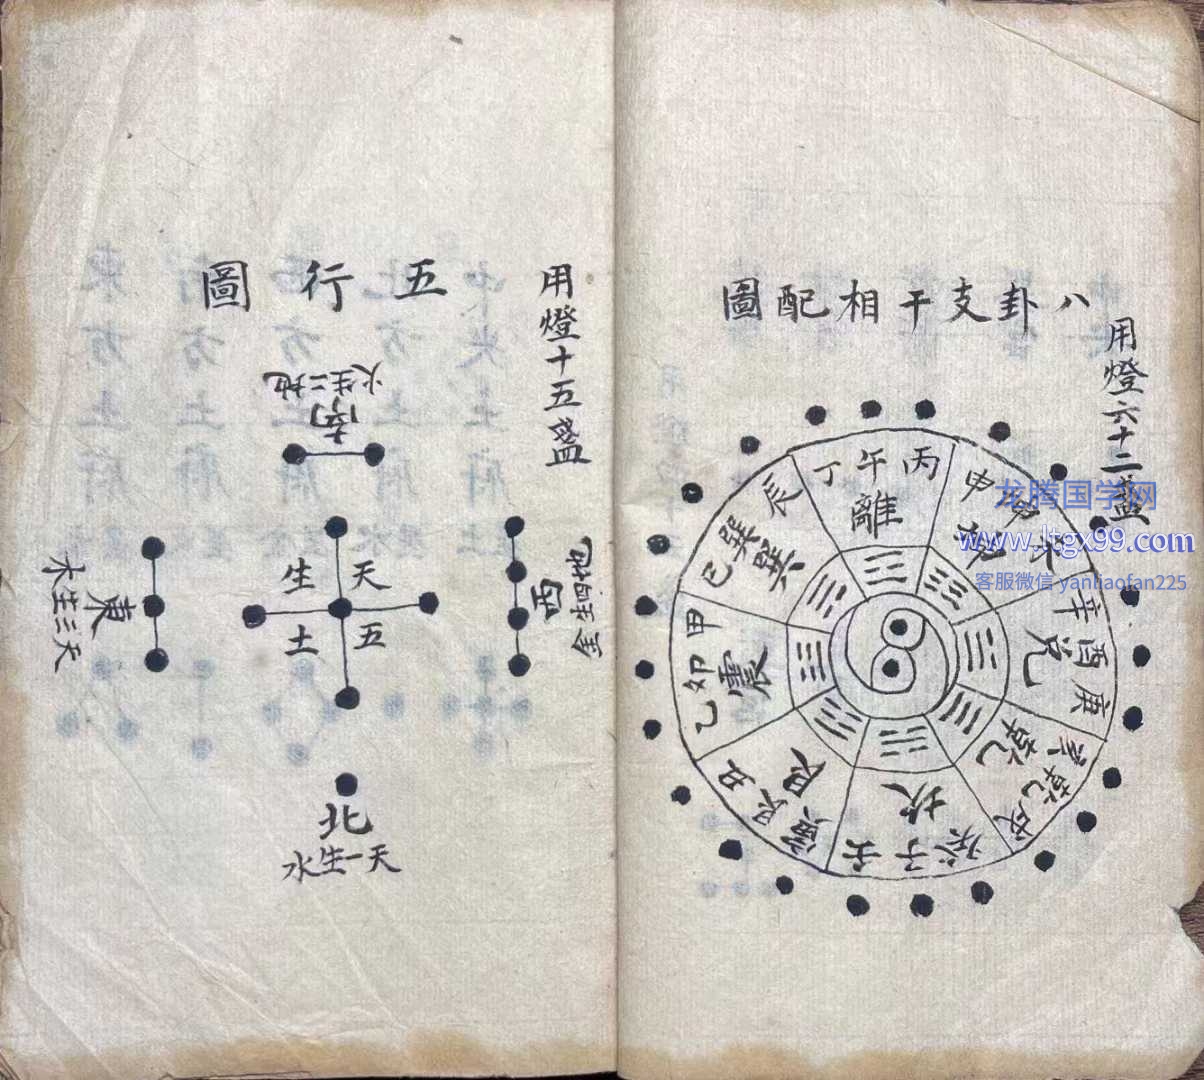 八卦支干相配圖
用燈六十二盞
丙午丁
離
申坤未
坤
辛酉庚
兌
戌乾亥
乾
壬子癸
坎
丑艮寅
艮
甲卯乙
震
辰巽巳
巽
龙腾国学网
www.ltgx99.com
客服微信 yanliaofan225
用燈十五盞
五行圖
南
地二生火
西
地四生金
天五
生土
東
天三生木
北
天一生水